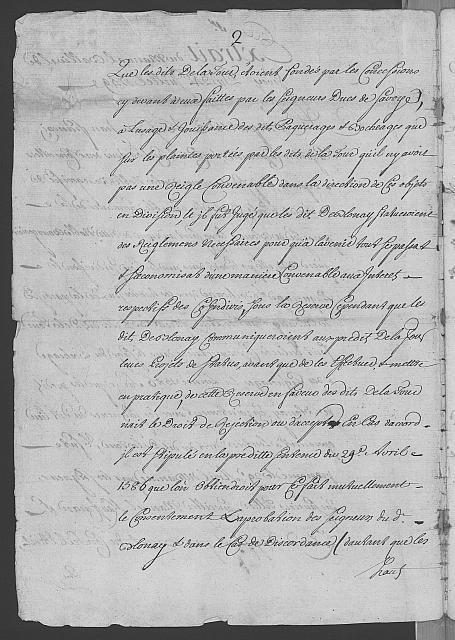 2
Que les dits De la Tour, étoient fondés par les Concessions
cy devant a eux faittes par les Seigneurs Ducs de Savoye,
a l'usage & Jouissance des dits Paquerages & Bocheages que
sur les plaintes portées par les dits de la Tour qu'il n'y avoit
pas une Reigle Convenable dans la direction de Ces objets
en Division il fut Jugé que les dit De Blonay Statueroient
des Reiglemens Necessaires pour qu'a l'avenir tout se passat
& s'œconomisat d'une maniere Convenable aux Interets
respectifs des Cy Indivis, sous la Reserve Cependant que les
dit De Blonay Communiqueroient aux predit De la Tour
leurs Projets de Statuts, avant que de les Effectuer, & mettre
en pratique de cette Reserve en faveur des dits De la Tour
nait le Droit de Rejection ou d'acceptat. En Cas d'accord
il est stipulé en la préditte Sentence du 29e Avril
1566 que l'on Obtiendroit pour Ce fait mutuellement
le Consentement & aprobation des Seigneurs du d.
Blonay & dans le Cas de Discordance (dautant que les